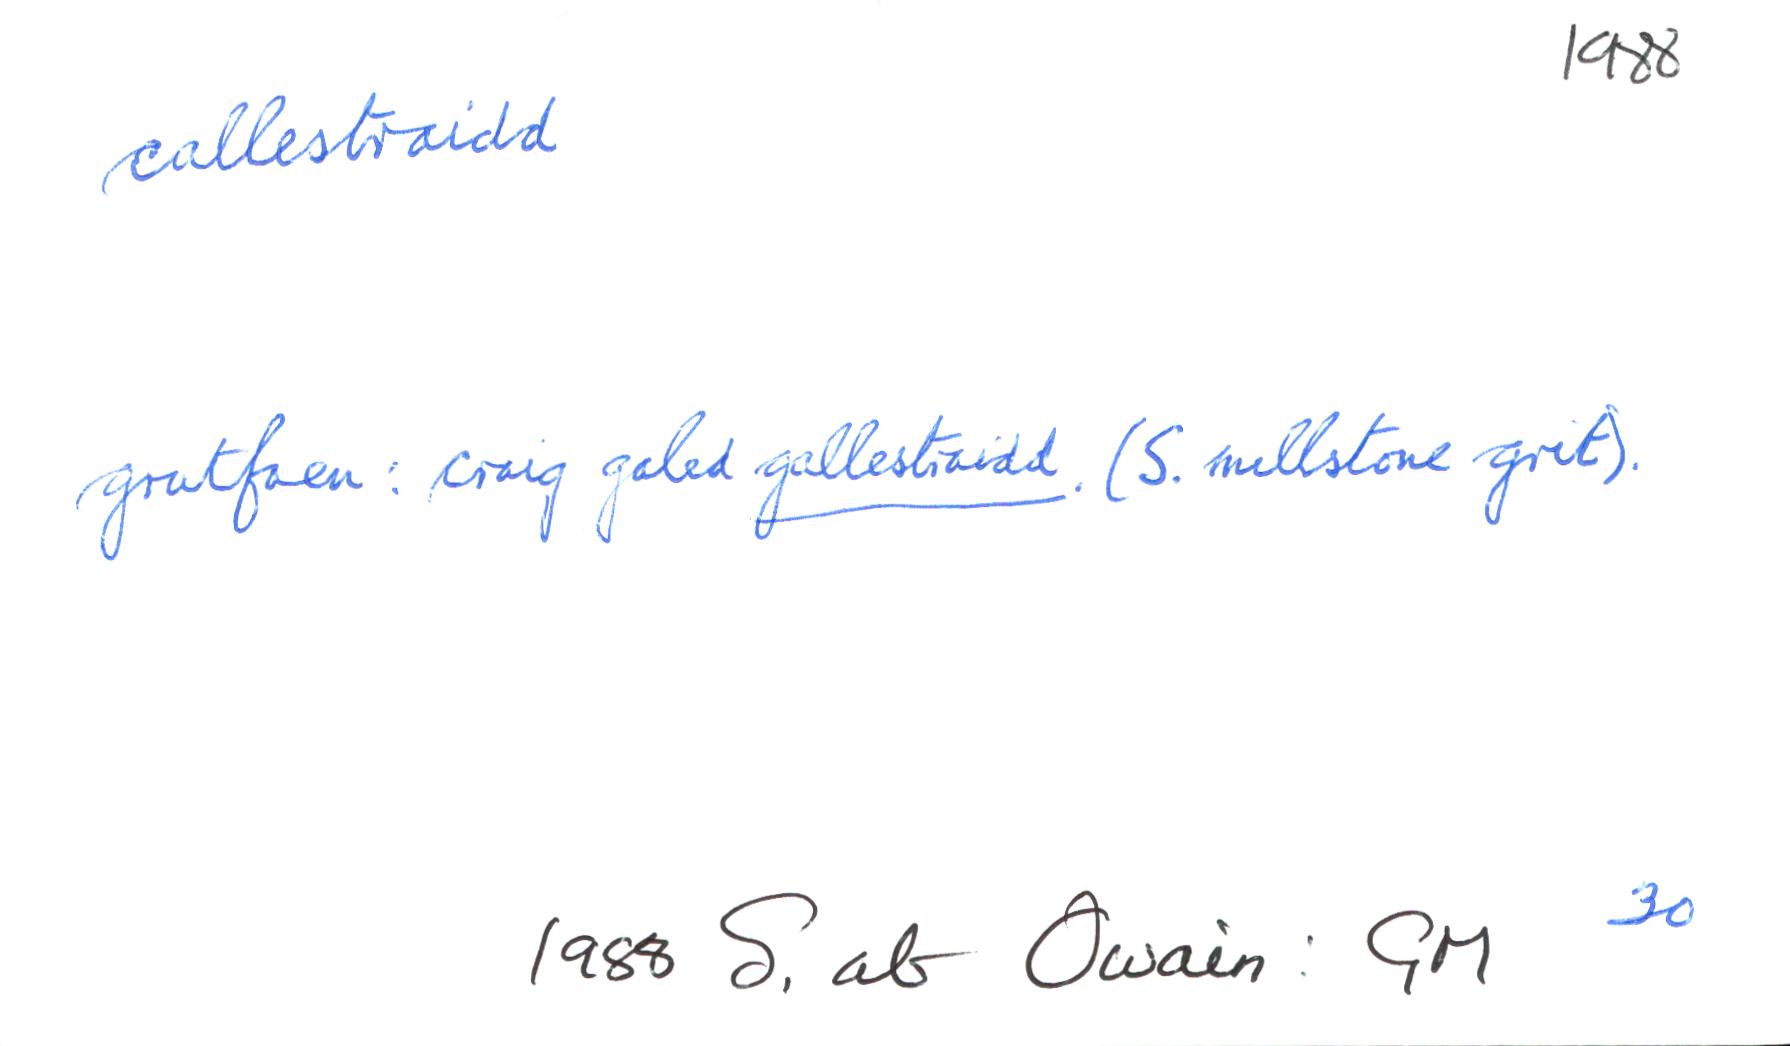 1988
callestraidd
grutfaen: craig galed gallestraidd. (S. millstone grit).
30
1988 S. ab Owain: GM